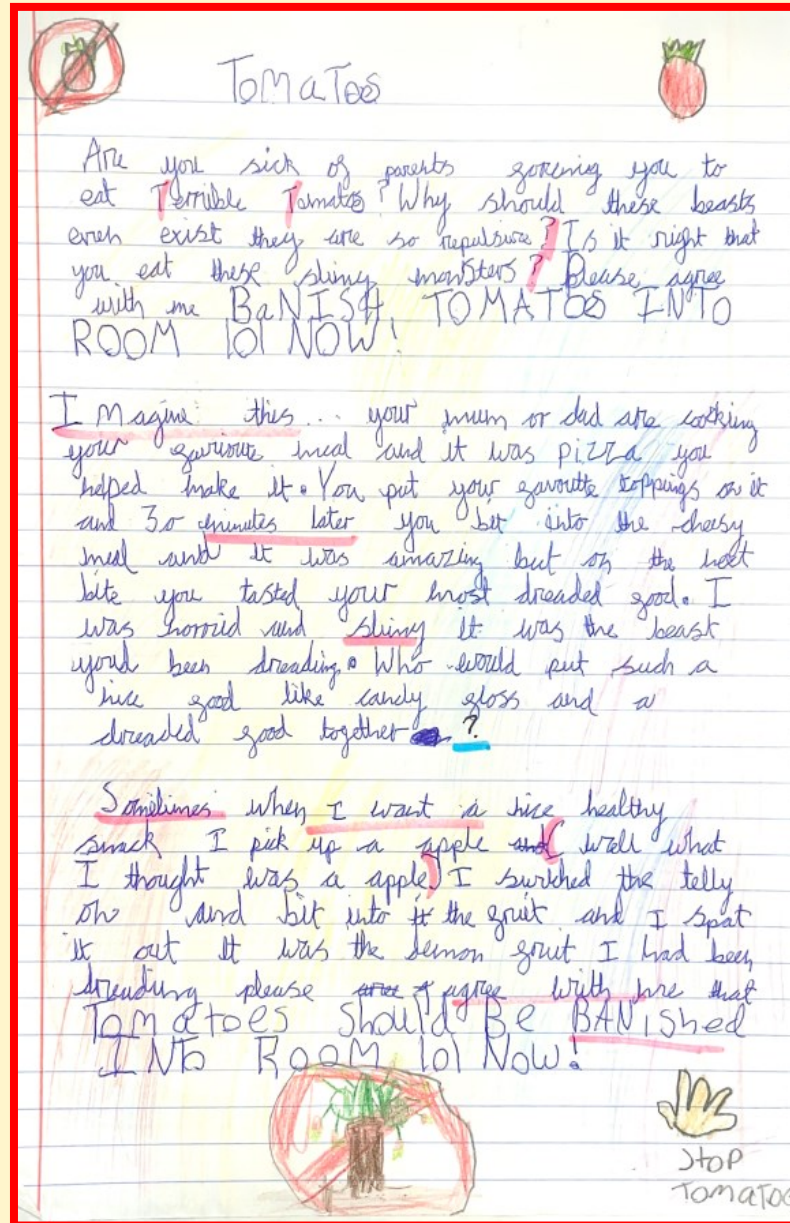 TomaToes
Are you sick of parents forcing you to
eat Terrible Tomatos? Why should these beasts
even exist they are so repulsive? Is it right that
you eat these slimy monsters? Please agree
with me BaNISH TOMATOS INTO
ROOM 101 NOW!
IMagine this... your mum or dad are cooking
your favrioute meal and it was pizza you
helped make it. You put your favoutte toppings on it
and 30 minutes later you bit into the cheesy
meal and it was amazing but on the next
bite you tasted your most dreaded food. I
was horrid and slimy it was the beast
youd been dreading. Who would put such a
nice food like candy floss and a
dreaded food together ?
Sometimes when I want a nice healthy
snack I pick up a apple (well what
I thought was a apple) I swiched the telly
on and bit into the fruit and I spat
it out It was the demon fruit I had been
dreading please agree with me that
Tomatoes Should Be BANIShed
INTo ROOM 101 NOW!
STOP
TomaToe